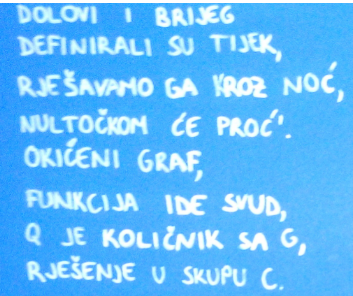 DOLOVI I BRIJEG
DEFINIRALI SU TIJEK,
RJEŠAVAMO GA KROZ NOĆ,
NULTOČKOM ĆE PROĆ'.
OKIĆENI GRAF,
FUNKCIJA IDE SVUD,
Q JE KOLIČNIK SA G,
RJEŠENJE U SKUPU C.